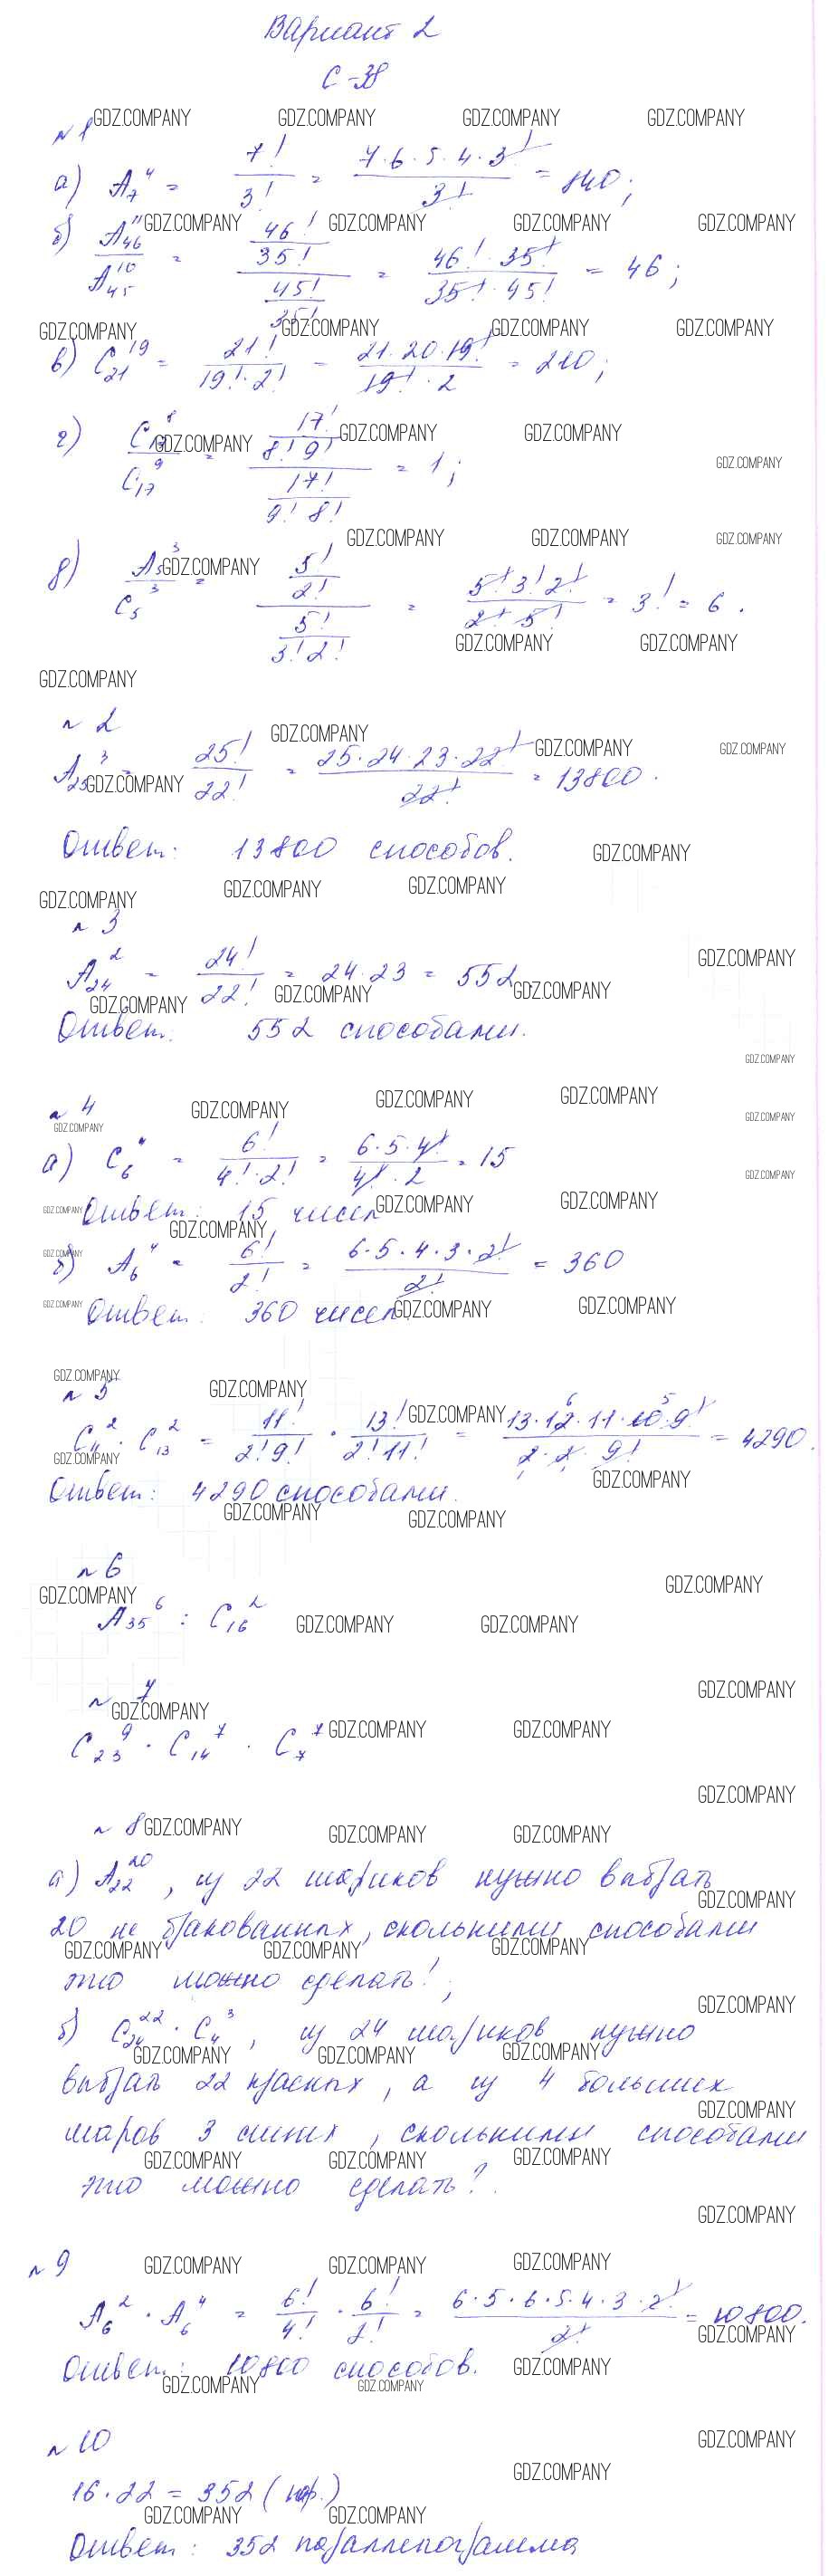 Вариант 2
С-38
№ 1
а) A₇⁴ = 7!/3! = 7·6·5·4·3!/3! = 840;
б) A₄₆¹¹/A₄₅¹⁰ = (46!/35!)/(45!/35!) = 46!·35!/35!·45! = 46;
в) C₂₁¹⁹ = 21!/19!·2! = 21·20·19!/19!·2 = 210;
г) C₁₇⁸/C₁₇⁹ = (17!/8!9!)/(17!/9!8!) = 1;
д) A₅³/C₅³ = (5!/2!)/(5!/3!2!) = 5!3!2!/2!5! = 3! = 6.
№ 2
A₂₅³ = 25!/22! = 25·24·23·22!/22! = 13800.
Ответ: 13800 способов.
№ 3
A₂₄² = 24!/22! = 24·23 = 552
Ответ: 552 способами.
№ 4
а) C₆⁴ = 6!/4!·2! = 6·5·4!/4!·2 = 15
Ответ: 15 чисел
б) A₆⁴ = 6!/2! = 6·5·4·3·2!/2! = 360
Ответ: 360 чисел
№ 5
C₁₁² · C₁₃² = 11!/2!9! · 13!/2!11! = 13·12·11·10·9!/2·2·9! = 4290.
Ответ: 4290 способами.
№ 6
A₃₅⁶ : C₁₆²
№ 7
C₂₃⁹ · C₁₄⁷ · C₇⁷
№ 8
а) A₂₂²⁰, из 22 шариков нужно выбрать
20 не бракованных, сколькими способами
это можно сделать!;
б) C₂₄²² · C₄³, из 24 шариков нужно
выбрать 22 красных, а из 4 больших
шаров 3 синих, сколькими способами
это можно сделать?.
№ 9
A₆² · A₆⁴ = 6!/4! · 6!/2! = 6·5·6·5·4·3·2!/2! = 10800.
Ответ: 10800 способов.
№ 10
16·22 = 352 (пар.)
Ответ: 352 параллелограмма
GDZ.COMPANY